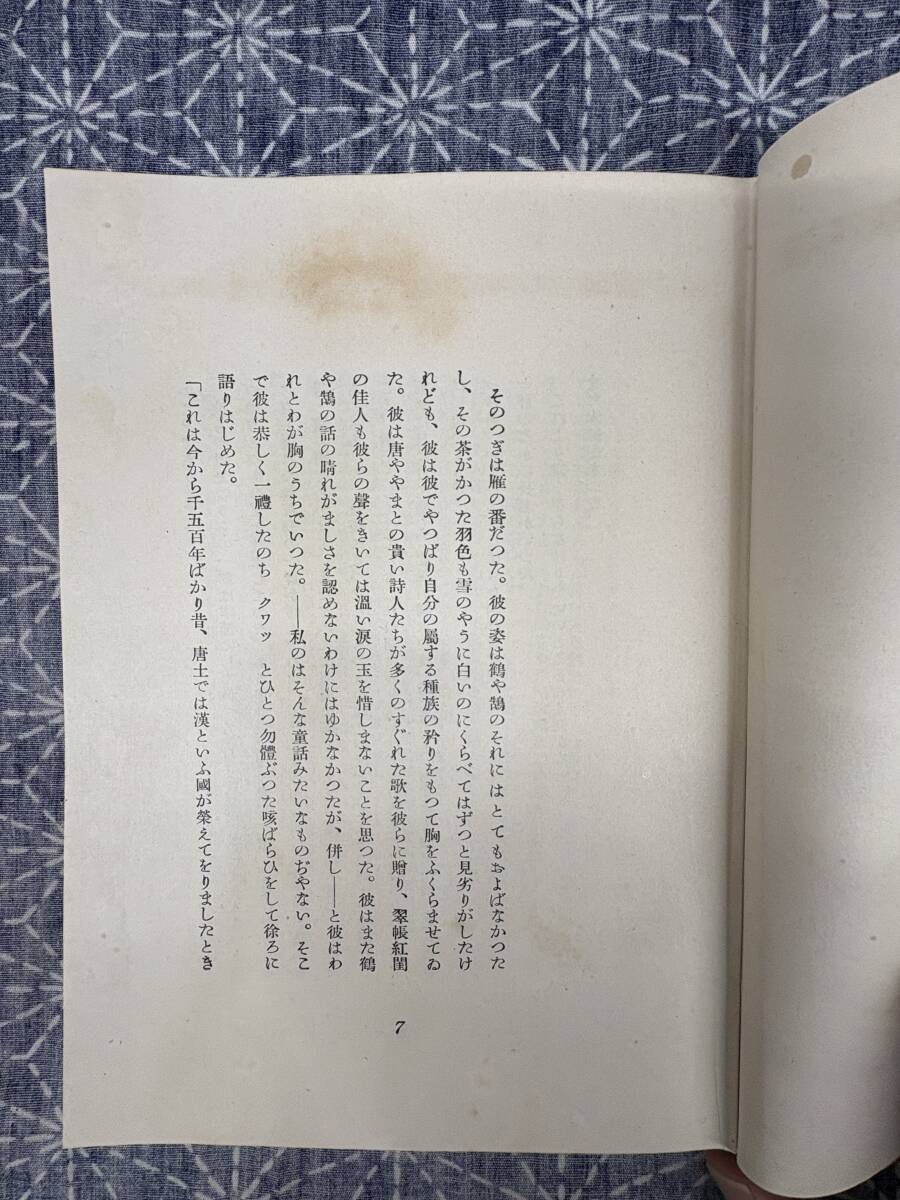 そのつぎは雁の番だつた。彼の姿は鶴や鵠のそれにはとてもおよばなかつた
し、その茶がかつた羽色も雪のやうに白いのにくらべてはずつと見劣りがしたけ
れども、彼は彼でやつぱり自分の屬する種族の矜りをもつて胸をふくらませてゐ
た。彼は唐ややまとの貴い詩人たちが多くのすぐれた歌を彼らに贈り、翠帳紅閨
の佳人も彼らの聲をきいては溫い淚の玉を惜しまないことを思つた。彼はまた鶴
や鵠の話の晴れがましさを認めないわけにはゆかなかつたが、併し――と彼はわ
れとわが胸のうちでいつた。――私のはそんな童話みたいなものぢやない。そこ
で彼は恭しく一禮したのち　クワッ　とひとつ勿體ぶつた咳ばらひをして徐ろに
語りはじめた。
「これは今から千五百年ばかり昔、唐土では漢といふ國が榮えてをりましたとき
7